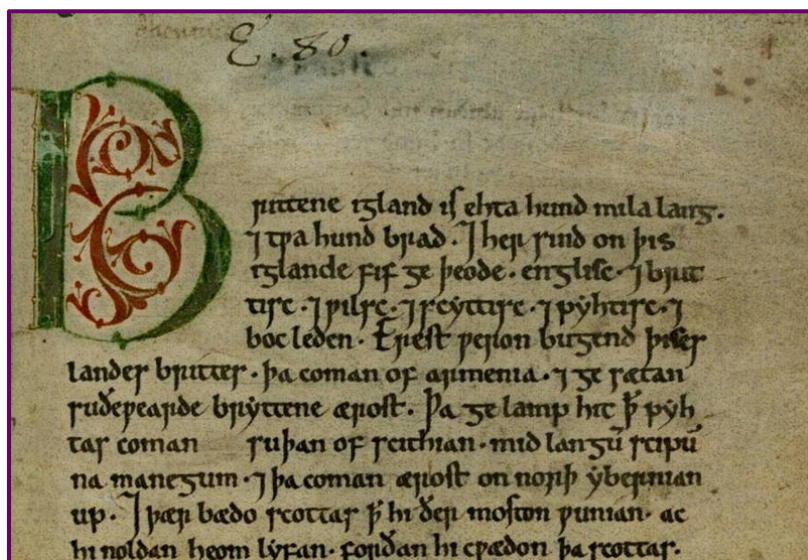 E. 80.
Brittene igland is ehta hund mila lang.
⁊ tƿa hund brad. ⁊ her sind on þis
iglande fif ge þeode. englisc. ⁊ brit
tisc. ⁊ ƿilsc. ⁊ scyttisc. ⁊ pyhtisc. ⁊
boc leden. Erest ƿeron bugend þises
landes brittes. þa coman of armenia. ⁊ ge sætan
suðeƿearde bryttene ærost. Þa ge lamp hit þꝥ pyh
tas coman suþan of scithian. mid langū scipū
na manegum. ⁊ þa coman ærost on norþ ybernian
up. ⁊ þær bædo scottas ꝥ hi ðer moston ƿunian. ac
hi noldan heom lyfan. forðan hi cƿædon þa scottas.